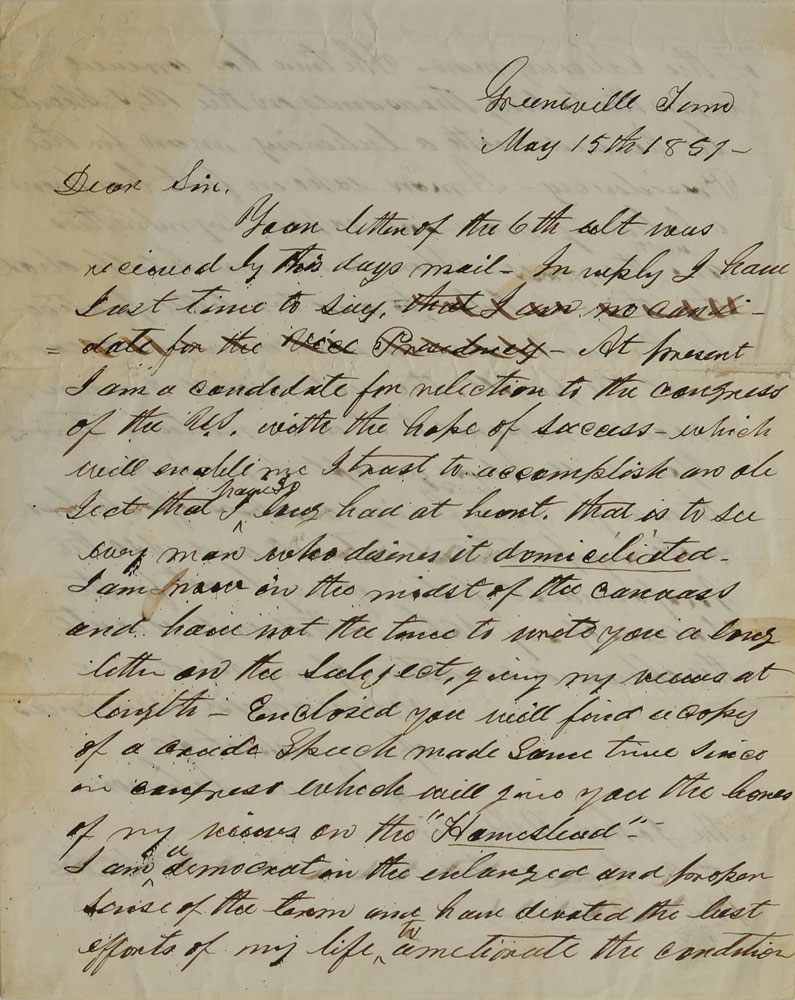 Greeneville Tenn
May 15th 1851-
Dear Sir,
Your letter of the 6th ult was
received by this days mail- In reply I have
Just time to say, that I am no candi-
= date for the Vice Presidency- At present
I am a candidate for relection to the congress
of the U.S. with the hope of success- which
will enable me I trust to accomplish an ob
Ject that I have so long had at heart. that is to see
every man who desires it domiciliated-
I am now in the midst of the canvass
and have not the time to write you a long
letter on the Subject, giving my views at
length- Enclosed you will find a copy
of a crude Speech made Some time Since
in congress which will give you the bones
of my views on the "Homestead"-
I am a democrat in the enlarged and proper
sense of the term and have devoted the best
efforts of my life, to ameliorate the condition